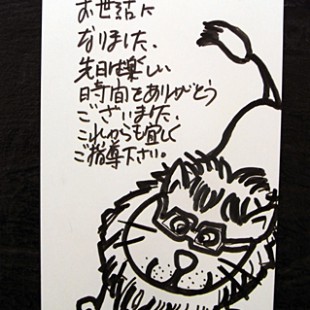 お世話に
なりました、
先日は楽しい
日時間をありがとう
ございました、
これからも宜しく
ご指導下さい。